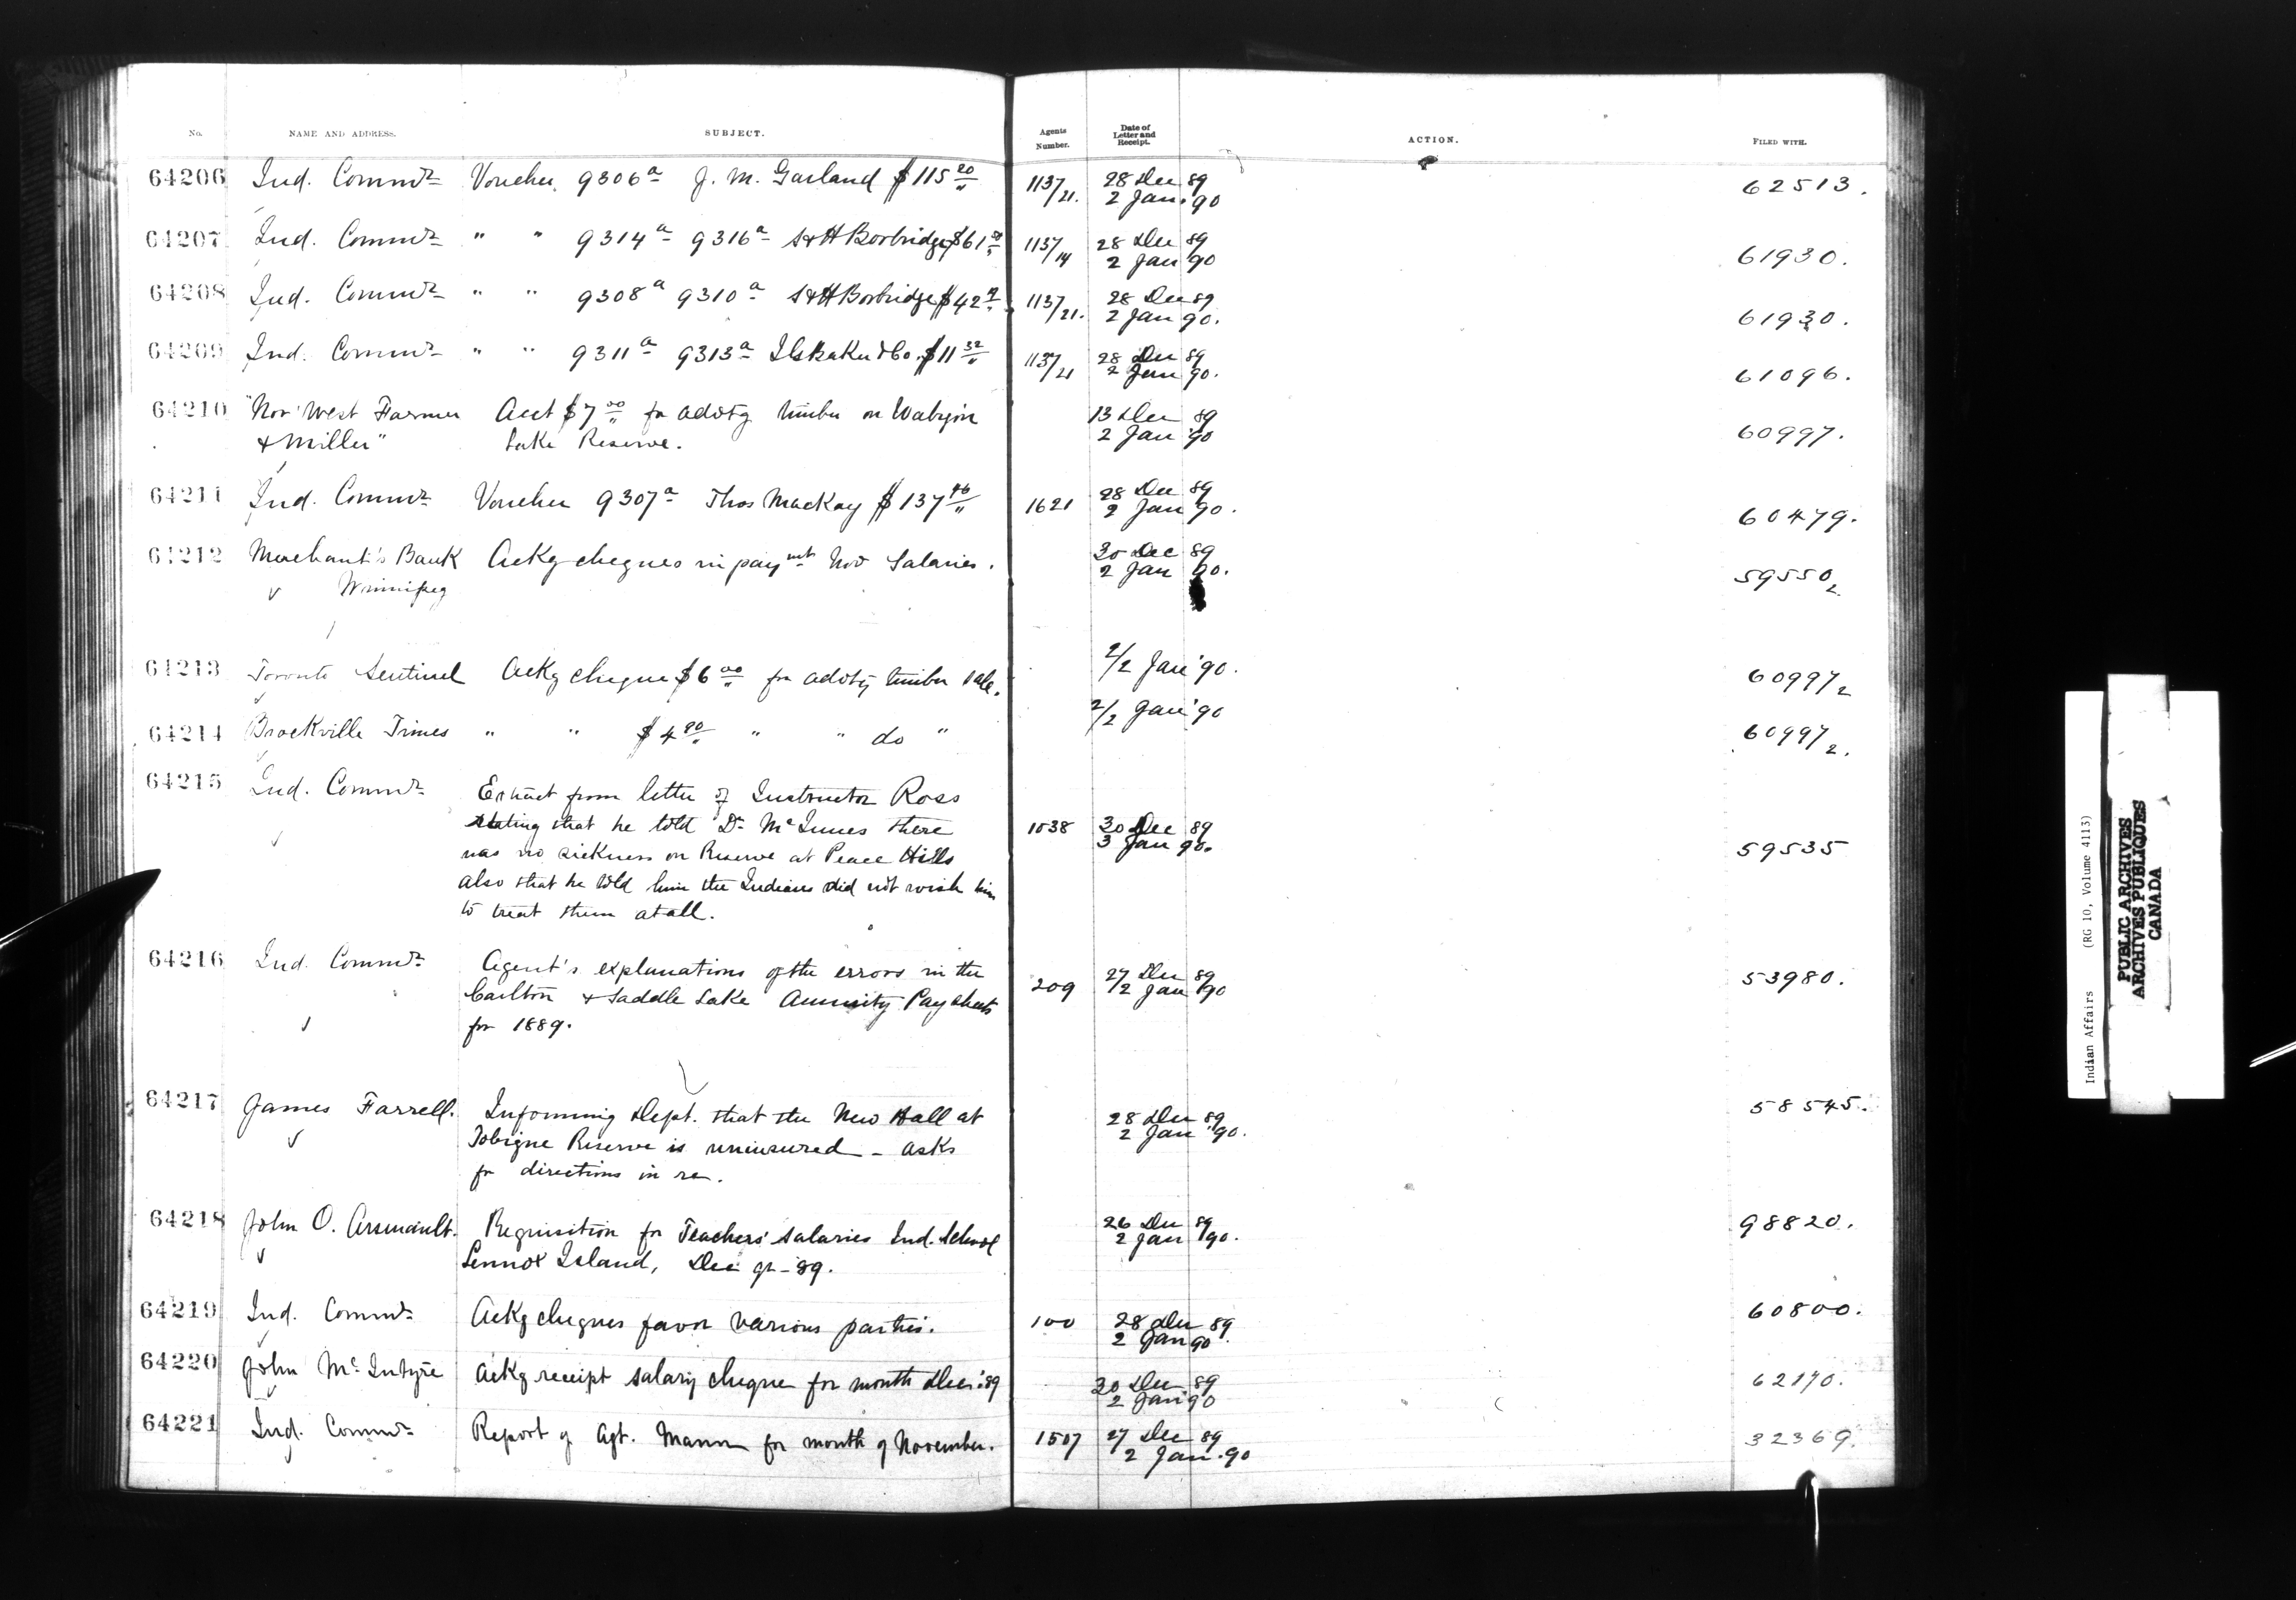 No. NAME AND ADDRESS. SUBJECT. Agents Number. Date of Letter and Receipt. ACTION. FILED WITH.
64206 Ind. Commr Voucher 9306a J. M. Garland $115 20 1137/21. 28 Dec 89 62513.
2 Jan. 90
64207 Ind. Commr " " 9314a 9316a S & H Borbridge $61 1137/14 28 Dec 89 61930.
2 Jan '90
64208 Ind. Commr " " 9308a 9310a S & H Borbridge $42 1137/21. 28 Dec 89 61930.
2 Jan 90.
64209 Ind. Commr " " 9311a 9313a I G Baker & Co. $11 32 1137/21 28 Dec 89 61096.
2 Jan 90.
64210 "Nor' West Farmer Acct $7 00 for advtg timber on Wabigon 13 Dec 89 60997.
& Miller" Lake Reserve. 2 Jan '90
64211 Ind. Commr Voucher 9307a Thos MacKay $137 46 1621 28 Dec 89 60479.
2 Jan 90.
64212 Merchant's Bank Ackg cheques in paymt Nov Salaries. 30 Dec 89 59550/2
Winnipeg 2 Jan 90.
64213 Toronto Sentinel Ackg cheque $6 00 for advtg timber sale. 2/2 Jan '90. 60997/2
64214 Brockville Times " " $4 80 " " do " 2/2 Jan '90 60997/2.
64215 Ind. Commr Extract from letter of Instructor Ross
stating that he told Dr McInnes there 1038 30 Dec 89
was no sickness on Reserve at Peace Hills 3 Jan 90. 59535
also that he told him the Indians did not wish him
to treat them at all.
64216 Ind. Commr Agent's explanations of the errors in the 27 Dec 89 53980.
Carlton & Saddle Lake Annuity Pay sheets 209 1/2 Jan '90
for 1889.
64217 James Farrell. Informing Dept. that the New Hall at 28 Dec 89 58545.
Tobique Reserve is uninsured - asks 2 Jan '90.
for directions in re.
64218 John O. Arsenault. Requisition for Teachers' salaries Ind. School 26 Dec 89 98820.
Lennox Island, Dec qr - 89. 2 Jan '90.
64219 Ind. Commr Ackg cheques favor various parties. 100 28 Dec 89 60800.
2 Jan 90.
64220 John McIntyre Ackg receipt salary cheque for month Dec: 89 30 Dec 89 62170.
2 Jan '90
64221 Ind. Commr Report of Agt. Mann for month of November. 1507 27 Dec 89 32369.
2 Jan. 90
Indian Affairs (RG 10, Volume 4113)
PUBLIC ARCHIVES
ARCHIVES PUBLIQUES
CANADA